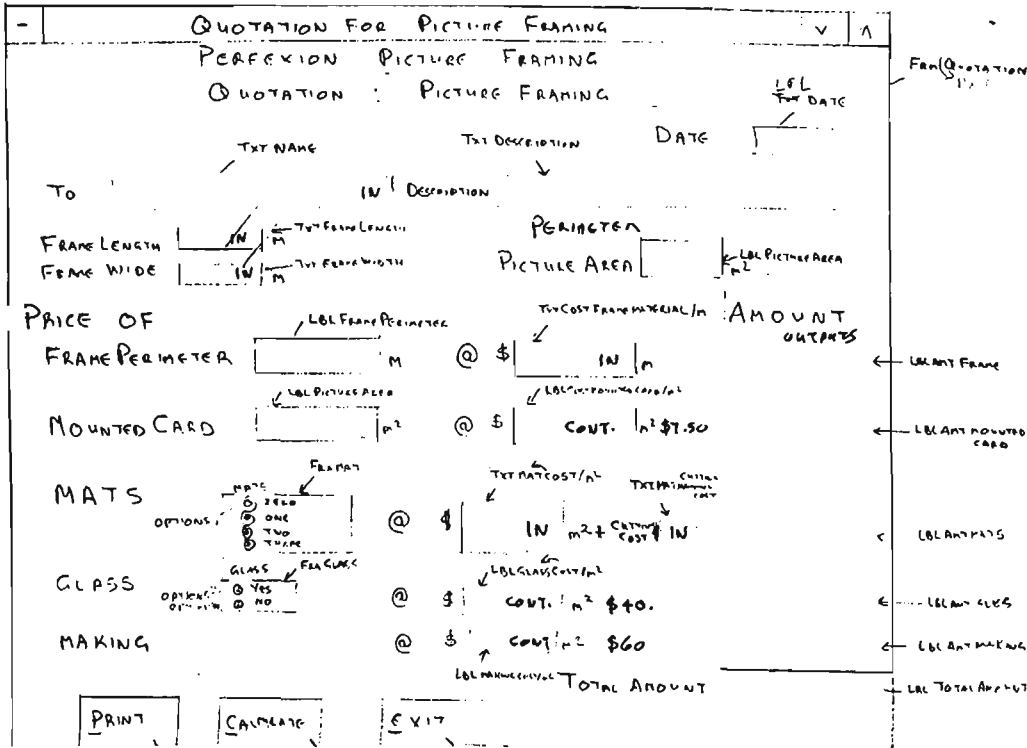 - QUOTATION FOR PICTURE FRAMING V Λ
PERFEXION PICTURE FRAMING
QUOTATION : PICTURE FRAMING
LBL
TXT DATE
DATE
TXT NAME
TXT DESCRIPTION
TO
IN DESCRIPTION
FRAME LENGTH IN M TXT FRAME LENGTH
FRAME WIDE IN M TXT FRAME WIDTH
PERIMETER
PICTURE AREA M² LBL PICTURE AREA
PRICE OF
AMOUNT
OUTPUTS
LBL FRAME PERIMETER
TXT COST FRAME MATERIAL/M
FRAME PERIMETER M @ $ IN M
LBL AMT FRAME
LBL PICTURE AREA
MOUNTED CARD M² @ $ CONT. M² $7.50
LBL AMT MOUNTED
CARD
MATS
FRAMAT
MATS
OPTIONS
ZERO
ONE
TWO
THREE
TXT MAT COST/M²
@ $ IN M² + CUTTING COST $ IN
LBL AMT MATS
GLASS
GLASS
FRAGLASS
OPTIONS
YES
NO
LBL GLASS COST/M²
@ $ CONT. M² $40.
LBL AMT GLASS
MAKING @ $ CONT M² $60
LBL AMT MAKING
TOTAL AMOUNT
LBL TOTAL AMOUNT
PRINT
CALCULATE
EXIT